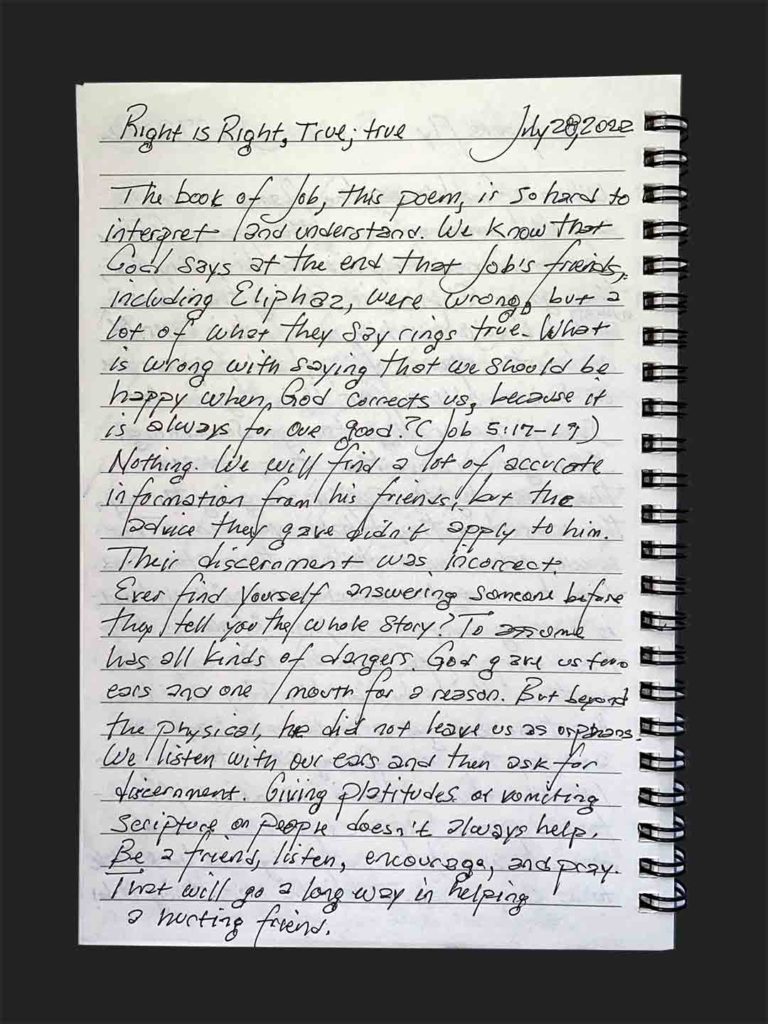 Right is Right, True; true July 28, 2022
The book of Job, this poem, is so hard to
interpret and understand. We know that
God says at the end that Job's friends,
including Eliphaz, were wrong, but a
lot of what they say rings true. What
is wrong with saying that we should be
happy when God corrects us, because it
is always for our good? (Job 5:17-19)
Nothing. We will find a lot of accurate
information from his friends, but the
advice they gave didn't apply to him.
Their discernment was incorrect.
Ever find yourself answering someone before
they tell you the whole story? To assume
has all kinds of dangers. God gave us two
ears and one mouth for a reason. But beyond
the physical, he did not leave us as orphans.
We listen with our ears and then ask for
discernment. Giving platitudes or vomiting
scripture on people doesn't always help.
Be a friend, listen, encourage, and pray.
That will go a long way in helping
a hurting friend.